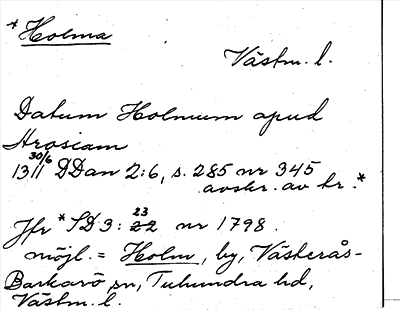 * Holma
Västm. l.
Datum Holmum apud
Arosiam
30/6
1311 DDan 2:6, s. 285 nr 345
avskr. av br.*
23
Jfr * SD 3: 22 nr 1798.
möjl. = Holm, by, Västerås-
Barkarö sn, Tuhundra hd,
Västm. l.